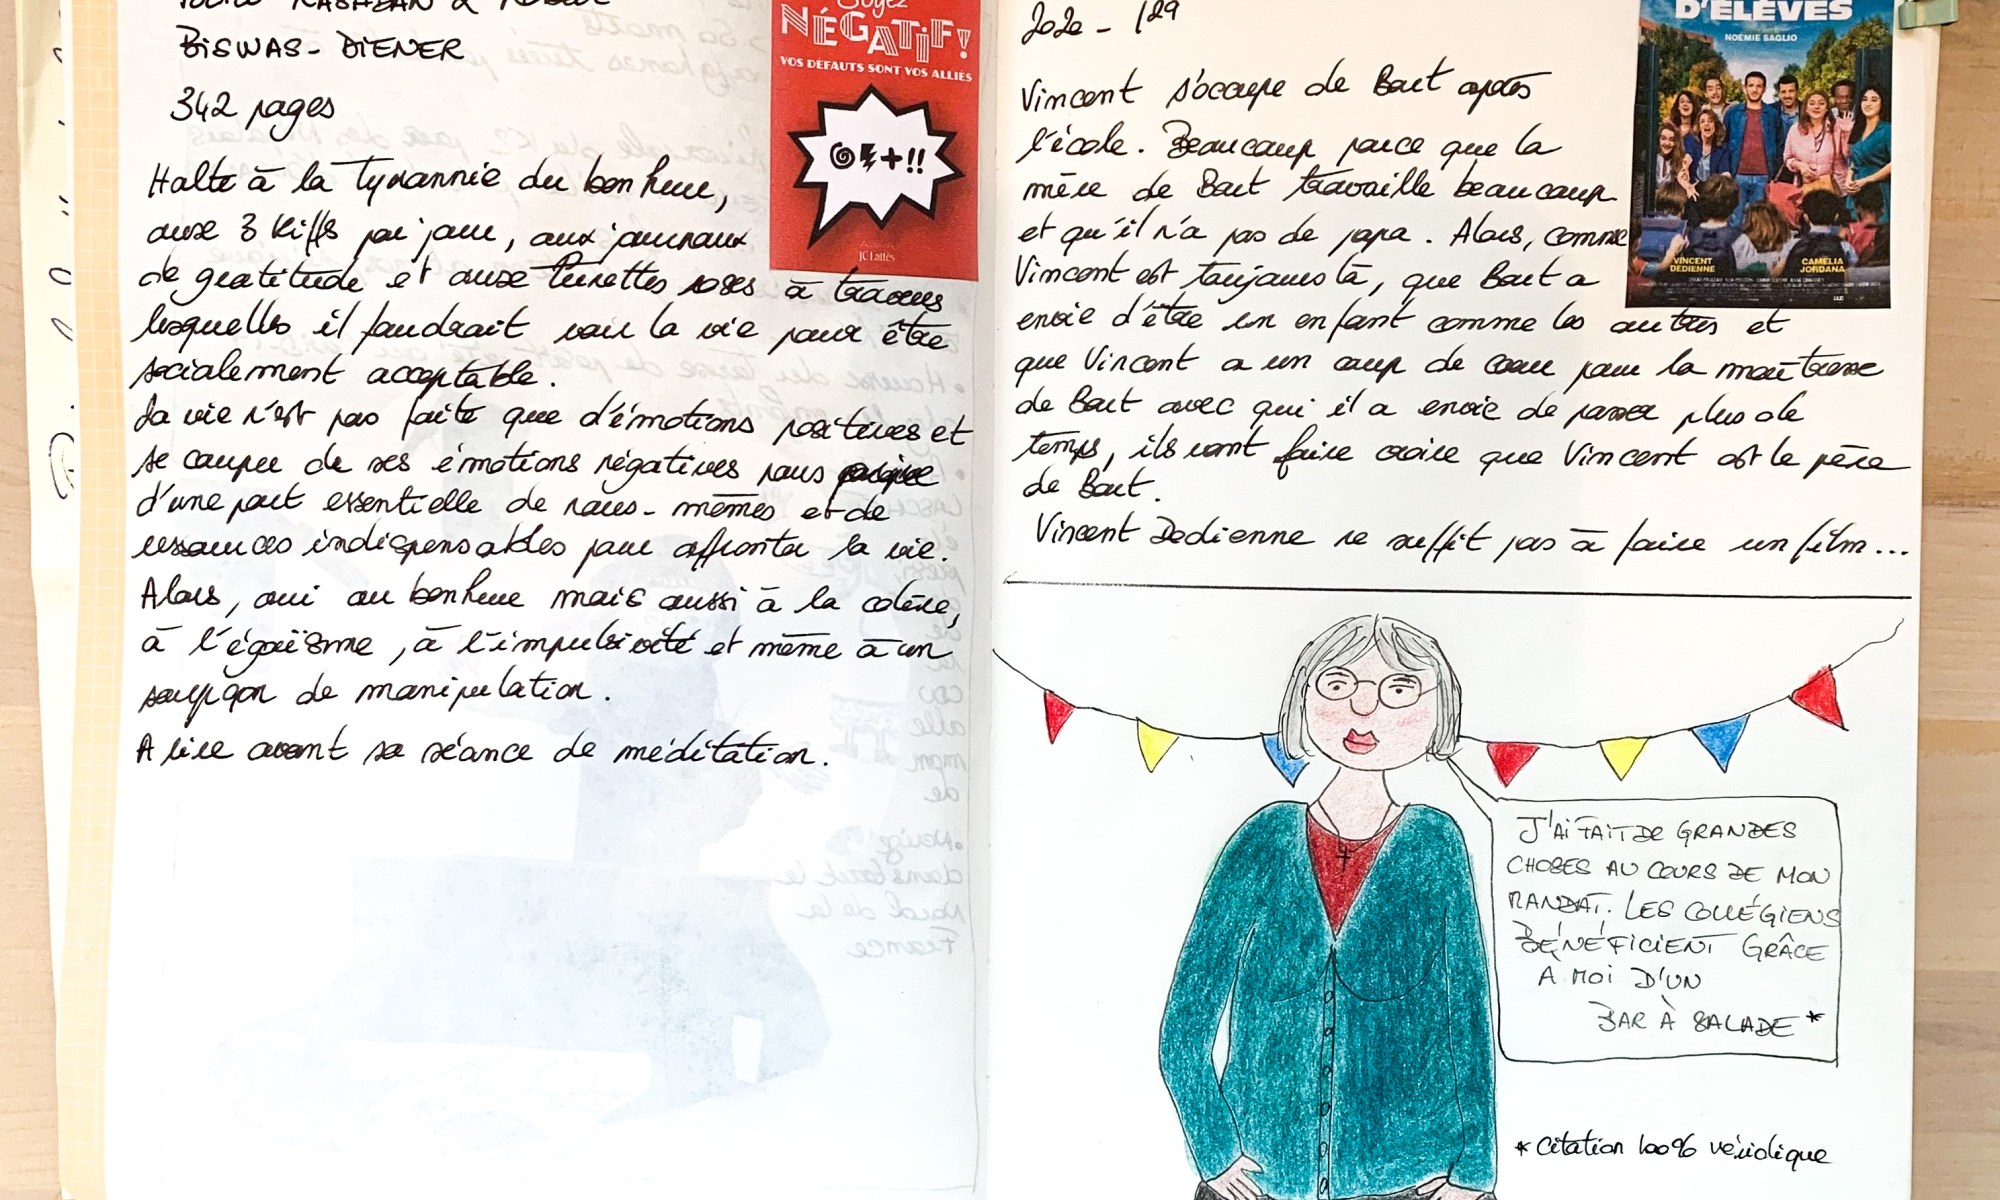 BISWAS-DIENER
342 pages
Halte à la Tyrannie du bonheur,
aux 3 kiffs par jour, aux journaux
de gratitude et aux lunettes roses à travers
lesquelles il faudrait voir la vie pour être
socialement acceptable.
La vie n'est pas faite que d'émotions positives et
se couper de ses émotions négatives nous prive
d'une part essentielle de nous-mêmes et de
ressources indispensables pour affronter la vie.
Alors, oui au bonheur mais aussi à la colère,
à l'égoïsme, à l'impulsivité et même à un
soupçon de manipulation.
A lire avant sa séance de méditation.
Soyez
NÉGATIF!
VOS DÉFAUTS SONT VOS ALLIÉS
+!!
JC Lattès
2020 - 1h29
Vincent s'occupe de Bart après
l'école. Beaucoup parce que la
mère de Bart travaille beaucoup
et qu'il n'a pas de papa. Alors, comme
Vincent est toujours là, que Bart a
envie d'être un enfant comme les autres et
que Vincent a un coup de coeur pour la maîtresse
de Bart avec qui il a envie de passer plus de
temps, ils vont faire croire que Vincent est le père
de Bart.
Vincent Dedienne ne suffit pas à faire un film...
D'ÉLÈVES
NOÉMIE SAGLIO
VINCENT DEDIENNE
CAMÉLIA JORDANA
J'AI FAIT DE GRANDES
CHOSES AU COURS DE MON
MANDAT. LES COLLÉGIENS
BÉNÉFICIENT GRÂCE
A MOI D'UN
BAR À SALADE *
* Citation 100% véridique